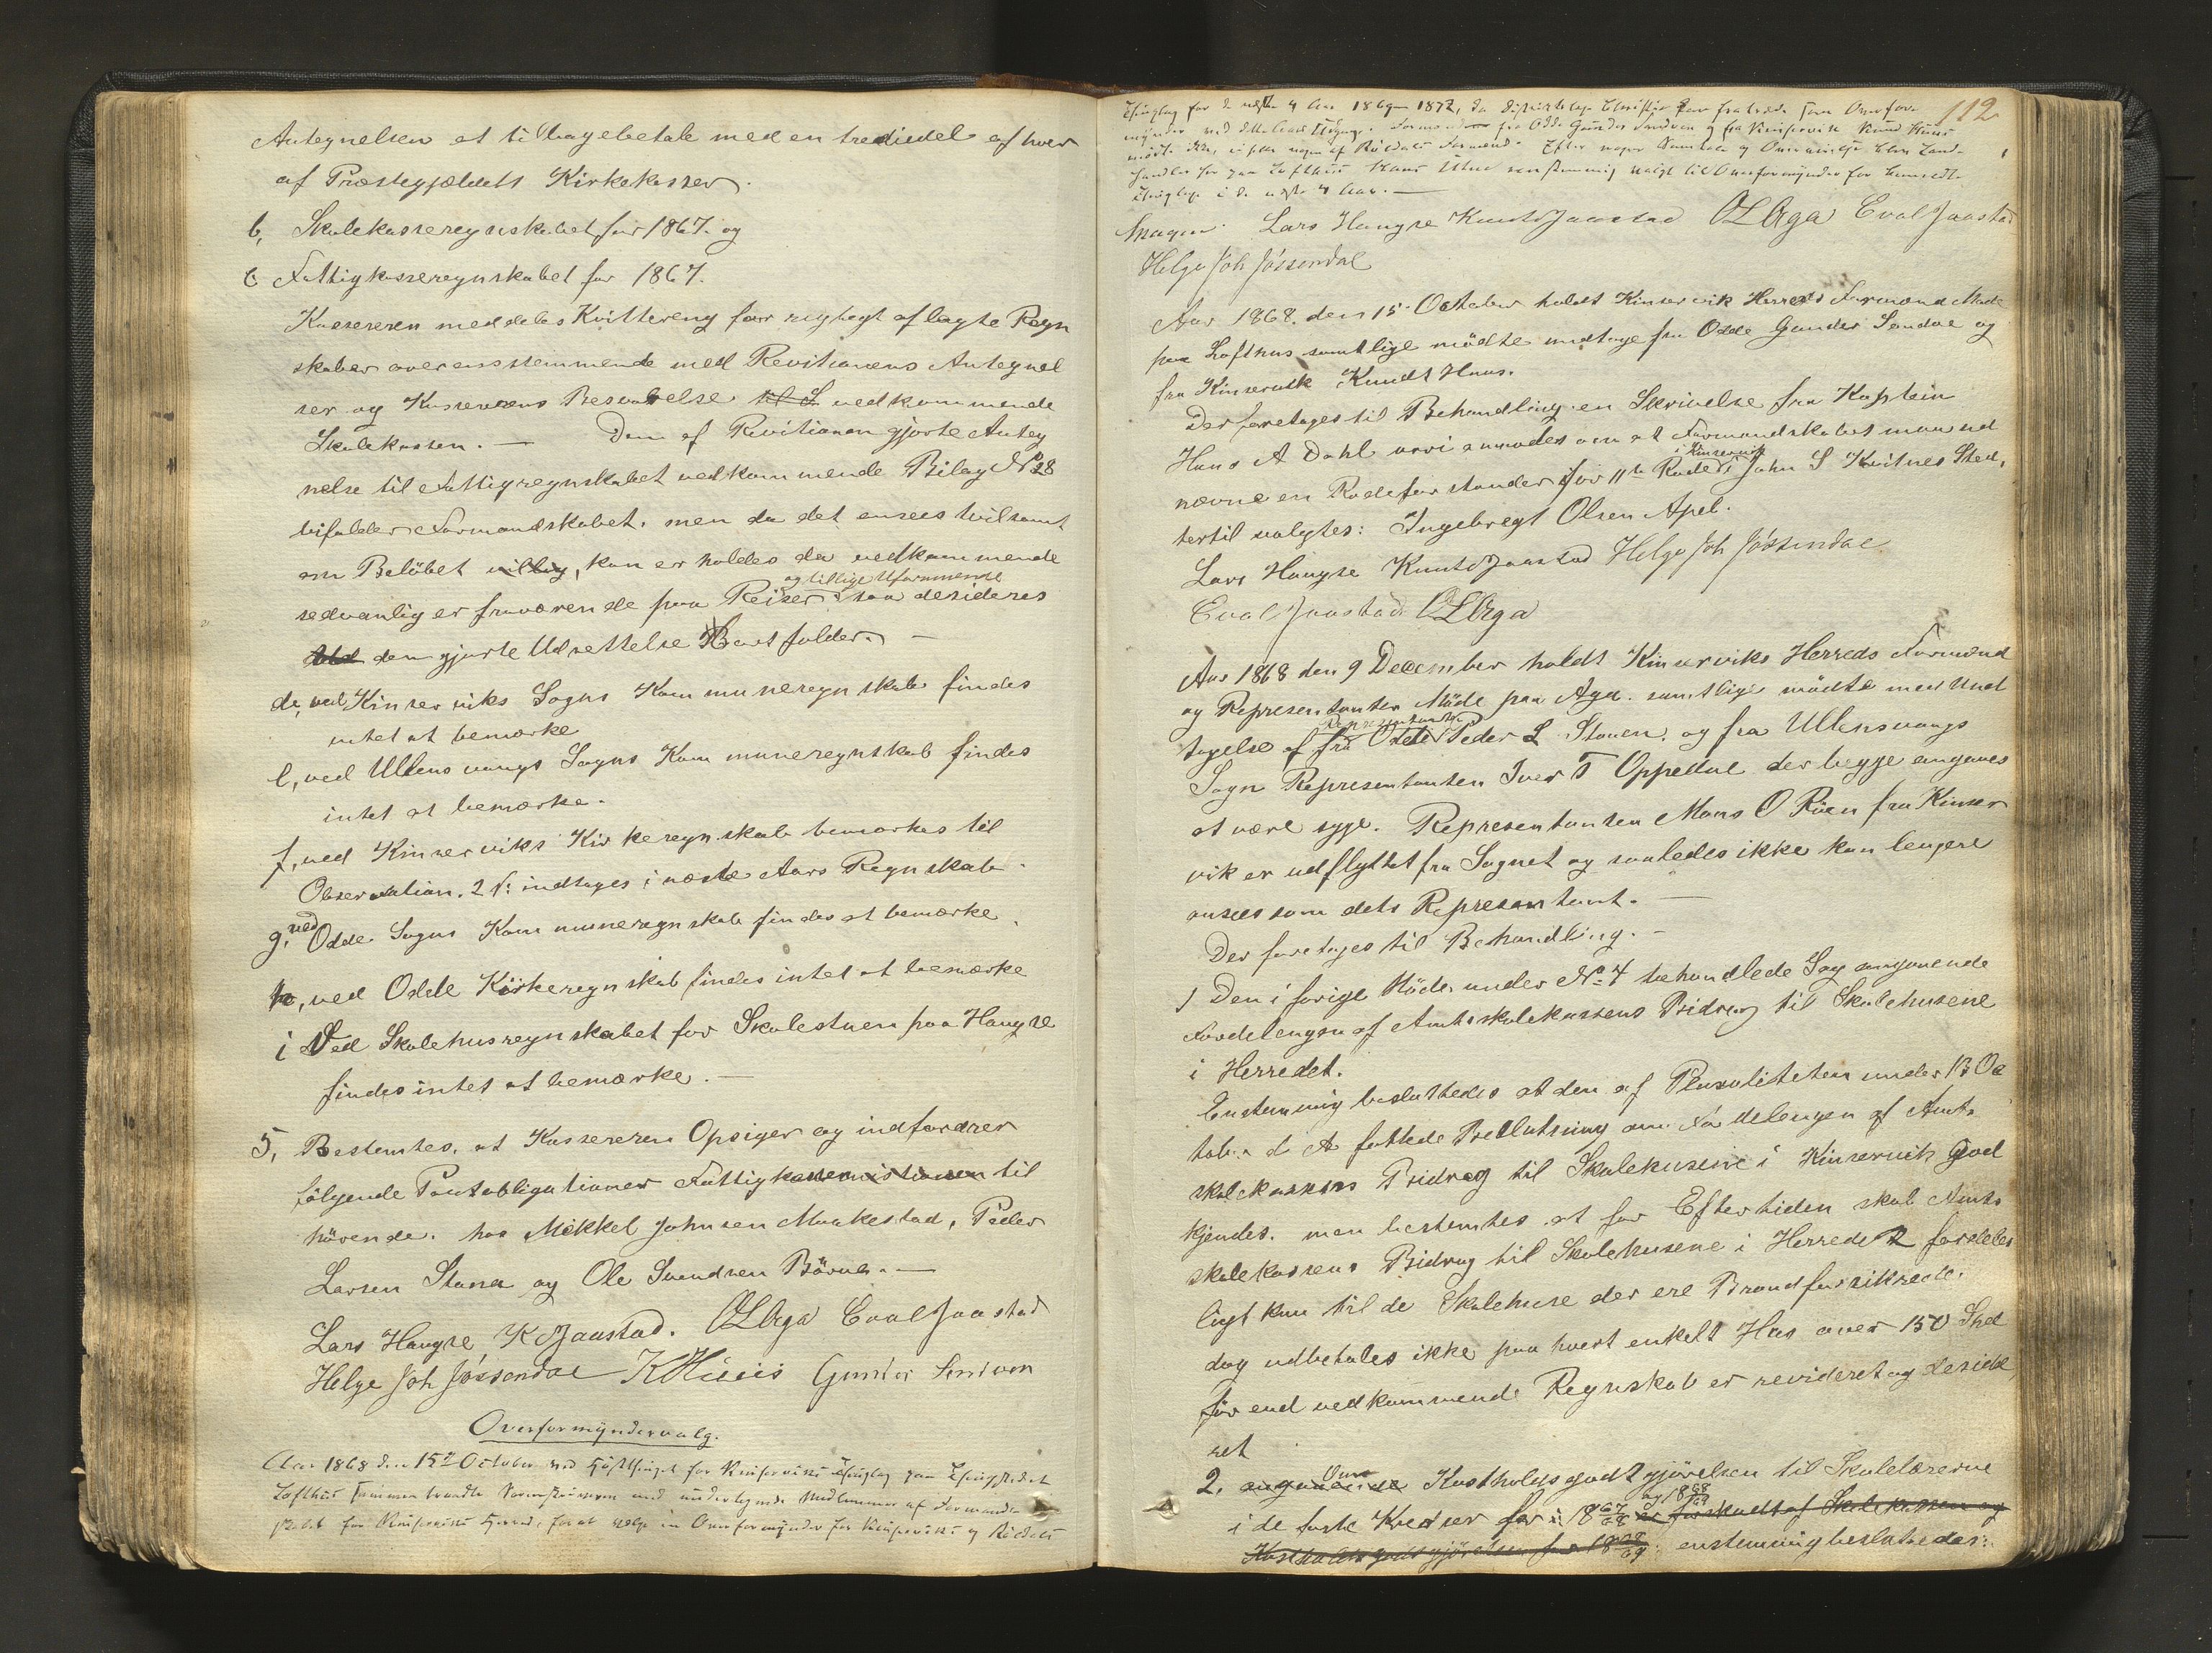 Antegnelsen at tilbagebetale med en trediedel af hver
af Præstegjældets Kirkekasser.
b, Skolekasseregnskabet for 1867. og
c Fattigkasseregnskabet for 1867.
Kassereren meddeles Kvittering for rigtigt aflagte Regn
skaber overensstemmende med Revitionens Antegnel
ser og Kassererens Besvarelse til S vedkommende
Skolekassen. — Den af Revitionen gjorte Anteg
nelse til Fattigregnskabet vedkommende Bilag No 28
bifalder Formandskabet. men da det ansees tvilsomt
om Beløbet villig, kan erholdes da vedkommende
og tillige Uformuende
sedvanlig er fraværende paa Reiser saa desideres
den gjorte Udsettelse Bortfalder. —
d, ved Kinserviks Sogns Kommuneregnskab findes
intet at bemærke
e, ved Ullensvangs Sogns Kommuneregnskab findes
intet at bemærke.
f, ved Kinserviks Kirkeregnskab bemærkes til
Observation. 2 s: indtages i næste Aars Regnskab.
g, ved Odde Sogns Kommuneregnskab findes at bemærke.
h, ved Odde Kirkeregnskab findes intet at bemærke
i Ved Skolehusregnskabet for Skolestuen paa Haugse
findes intet at bemærke. —
5, Bestemtes, at Kassereren Opsiger og indfordrer
følgende Pantobligationer Fattigkassen til
hørende. hos Mikkel Johnsen Maakestad, Peder
Larsen Stana og Ole Svendsen Børve. —
Lars Haugse K Jaastad. OLAga Eval Jaastad
Helge Joh Jøssendal KHuus Gunder Sandven
Overformyndervalg.
Aar 1868 den 15de October ved Høstthinget for Kinserviks Thinglag paa Thingstedet
Lofthus sammentraadte Sorenskriveren med undertegnede Medlemmer af Formand-
skabet for Kinserviks Herred, for at vælge en Overformynder for Kinserviks og Røldals
112
Thinglag for de næste 4 Aar 1869–1872, da
mynder ved dette Aars Udgang. Formand fra Odde Gunder Sandven og fra Kinservik Knud Huus
mødte ikke, ei heller nogen af Røldals Formænd. Efter nogen Samtale og Omvexling blev Land-
handler paa Lofthus Hans Utne eenstemmig valgt til Overformynder for bemeldte
Thinglag i de næste 4 Aar. —
Lars Haugse Knut Jaastad OLAga Eval Jaastad
Helge Joh Jøssendal
Aar 1868. den 15. October holdt Kinservik Herreds Formænd Møde
paa Lofthus samtlige mødte undtage fra Odde Gunder Sandve og
fra Kinservik Knudt Huus.
Der foretages til Behandling en Skrivelse fra Kaptein
Hans A Dahl vori anmodes om at Formandskabet maa ud
i Kinservik
nævne en Rodeforstander for 11te Rode i John S Kvitnes Sted,
hertil valgtes: Ingebregt Olsen Apel.
Lars Haugse Knut Jaastad Helge Joh Jøssendal
Eval Jaastad OLAga
Aar 1868 den 9 December holdt Kinserviks Herreds Formænd
og Representanter Møde paa Aga. samtlige mødte med Und
Representanten
tagelse af fra Odde Peder L Stanen, og fra Ullensvangs
Sogn Representanten Iver T Oppedal der begge angaves
at være syge. Representanten Mons O Røen fra Kinser
vik er udflyttet fra Sognet og saaledes ikke kan lengere
ansees som dets Representant. —
Der foretages til Behandling. —
1 Den i forige Møde under No 4 behandlede Sag angaaende
Fordelengen af Amtsskolekassens Bidrag til Skolehusene
i Herredet.
Enstemmig besluttedes at den af Pluraliteten under 13 Oc
tob. d A fattede Beslutning om Fordelengen af Amts
skolekassens Bidrag til Skolehusene i Kinservik God
kjendes. men bestemtes at for Eftertiden skal Amts
skolekassens Bidrag til Skolehusene i Herredet fordeles
ligt kun til de Skolehuse der ere Brandforsikrede.
dog udbetales ikke paa hvert enkelt Hus over 150 Spd
før end vedkommende Regnskab er revideret og deside
ret
2. angaaende Om Kostholdsgodtgjørelsen til Skolelærerne
og 1868/69
i de faste Kredser for 1867/68 er forskudt af Skolekassen og
Kostholdsgodtgjørelsen for 1868/69. enstemmig besluttedes: